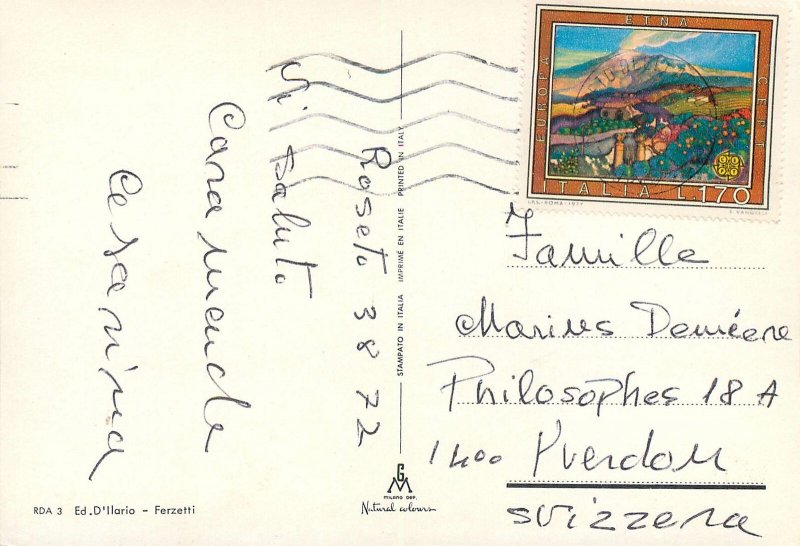 Roseto 3 8 72
Vi saluto
Caramende
Cesarina
STAMPATO IN ITALIA IMPRIMÉ EN ITALIE PRINTED IN ITALY
GM
MILANO DEP.
Natural colours
RDA 3 Ed.D'Ilario - Ferzetti
EUROPA ETNA CEPT
ITALIA L.170
I.P.S.-ROMA-1977 E. VANGELLI
Famille
Marius Demierre
Philosophes 18 A
1400 Yverdon
svizzera